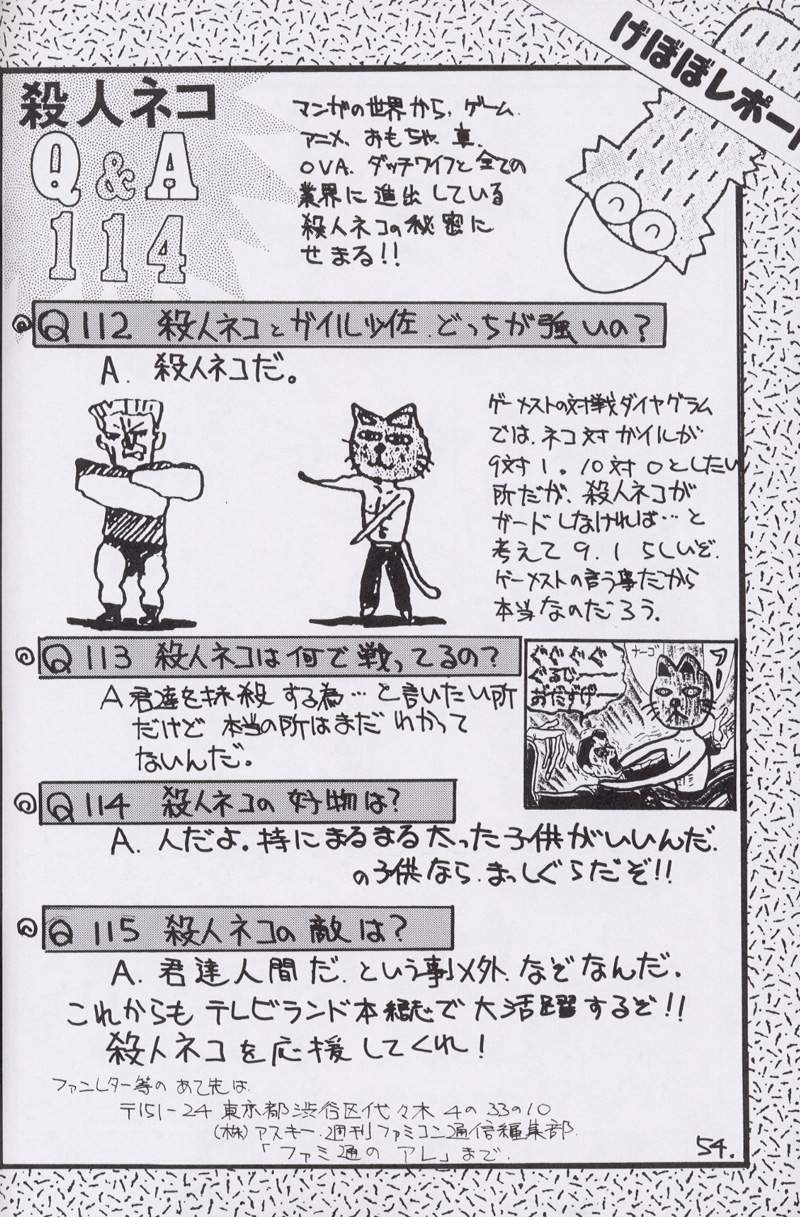 げぼぼレポート
殺人ネコ
Q&A
114
マンガの世界から、ゲーム、
アニメ、おもちゃ、車、
OVA、ダッチワイフと全ての
業界に進出している
殺人ネコの秘密に
せまる!!
Q112 殺人ネコとガイル少佐、どっちが強いの?
A. 殺人ネコだ。
ゲーメストの対戦ダイヤグラム
では、ネコ対ガイルが
9対1。10対0としたい
所だが、殺人ネコが
ガードしなければ…と
考えて9.1らしいぞ。
ゲーメストの言う事だから
本当なのだろう。
Q113 殺人ネコは何で戦ってるの?
A 君達を抹殺する為…と言いたい所
だけど本当の所はまだわかって
ないんだ。
ぐぐぐぐ
ぐるじ〜
おだずげ〜
ナーゴ
フー
Q114 殺人ネコの好物は?
A. 人だよ。特にまるまる太った子供がいいんだ。
の子供なら、まっしぐらだぞ!!
Q115 殺人ネコの敵は?
A. 君達人間だ、という事以外、なぞなんだ。
これからもテレビランド本誌で大活躍するぞ!!
殺人ネコを応援してくれ!
ファンレター等のあて先は
〒151-24 東京都渋谷区代々木4の33の10
(株)アスキー、週刊ファミコン通信編集部
「ファミ通のアレ」まで。
54.